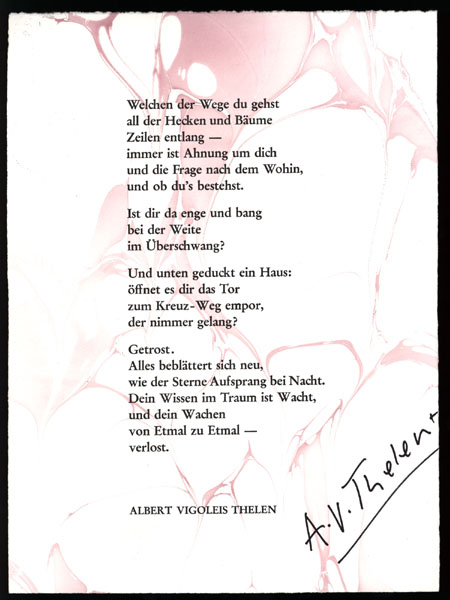 Welchen der Wege du gehst
all der Hecken und Bäume
Zeilen entlang —
immer ist Ahnung um dich
und die Frage nach dem Wohin,
und ob du's bestehst.
Ist dir da enge und bang
bei der Weite
im Überschwang?
Und unten geduckt ein Haus:
öffnet es dir das Tor
zum Kreuz-Weg empor,
der nimmer gelang?
Getrost.
Alles beblättert sich neu,
wie der Sterne Aufsprang bei Nacht.
Dein Wissen im Traum ist Wacht,
und dein Wachen
von Etmal zu Etmal —
verlost.
ALBERT VIGOLEIS THELEN
A.V. Thelen